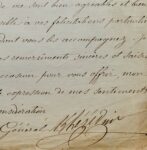 me sont bien agréables et bien
sensible à vos félicitations particulières
dont vous les accompagnez
remerciments sincères et
occasion pour vous offrir, mon
expression de mes sentiments
considération
Général